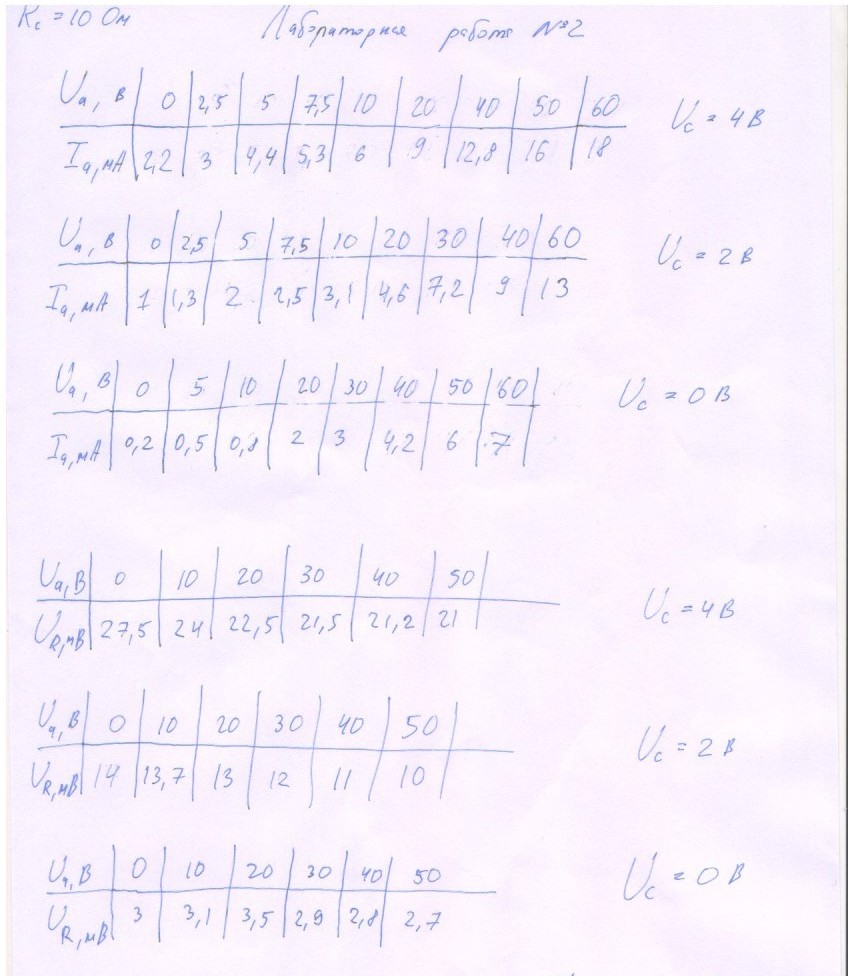 Rс = 10 Ом
Лабораторная работа №2
Uа, В 0 2,5 5 7,5 10 20 40 50 60 Uс = 4 В
Iа, мА 2,2 3 4,4 5,3 6 9 12,8 16 18
Uа, В 0 2,5 5 7,5 10 20 30 40 60 Uс = 2 В
Iа, мА 1 1,3 2 2,5 3,1 4,6 7,2 9 13
Uа, В 0 5 10 20 30 40 50 60 Uс = 0 В
Iа, мА 0,2 0,5 0,8 2 3 4,2 6 7
Uа, В 0 10 20 30 40 50 Uс = 4 В
UR, мВ 27,5 24 22,5 21,5 21,2 21
Uа, В 0 10 20 30 40 50 Uс = 2 В
UR, мВ 14 13,7 13 12 11 10
Uа, В 0 10 20 30 40 50 Uс = 0 В
UR, мВ 3 3,1 3,5 2,9 2,8 2,7